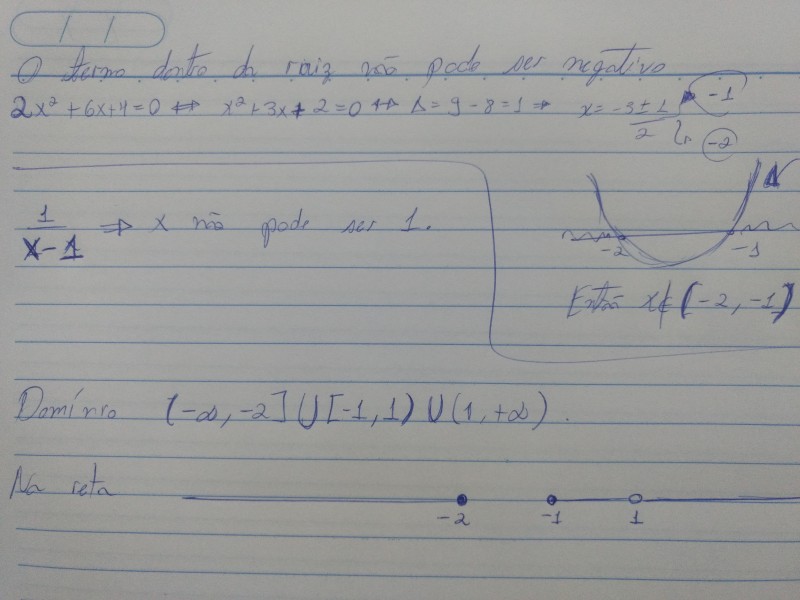 O termo dentro da raiz não pode ser negativo
2x² + 6x + 4 = 0 ⇔ x² + 3x + 2 = 0 ⇔ Δ = 9 - 8 = 1 ⇒ x = (-3 ± 1)/2 -1 -2
1/(x - 1) ⇒ x não pode ser 1.
-2 -1
Então x ∉ (-2, -1)
Domínio (-∞, -2] ∪ [-1, 1) ∪ (1, +∞).
Na reta
-2 -1 1